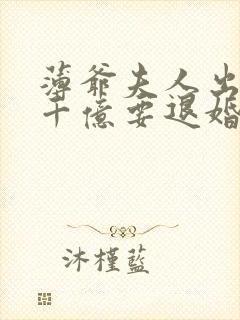 薄爺夫人出
十億要退婚
沐槿藍